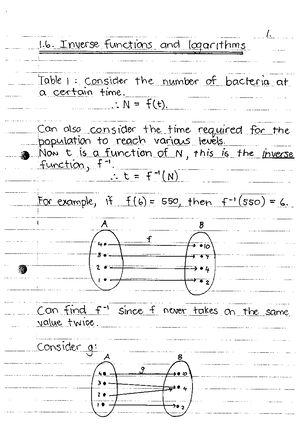 1.
1.6. Inverse functions and logarithms
Table 1 : Consider the number of bacteria at
a certain time.
∴ N = f(t).
Can also consider the time required for the
population to reach various levels.
Now t is a function of N, this is the inverse
function, f⁻¹.
∴ t = f⁻¹(N)
For example, if f(6) = 550, then f⁻¹(550) = 6.
A B
f
4 10
3 7
2 4
1 2
Can find f⁻¹ since f never takes on the same
value twice.
Consider g:
A B
g
4 10
3 4
2
1 2